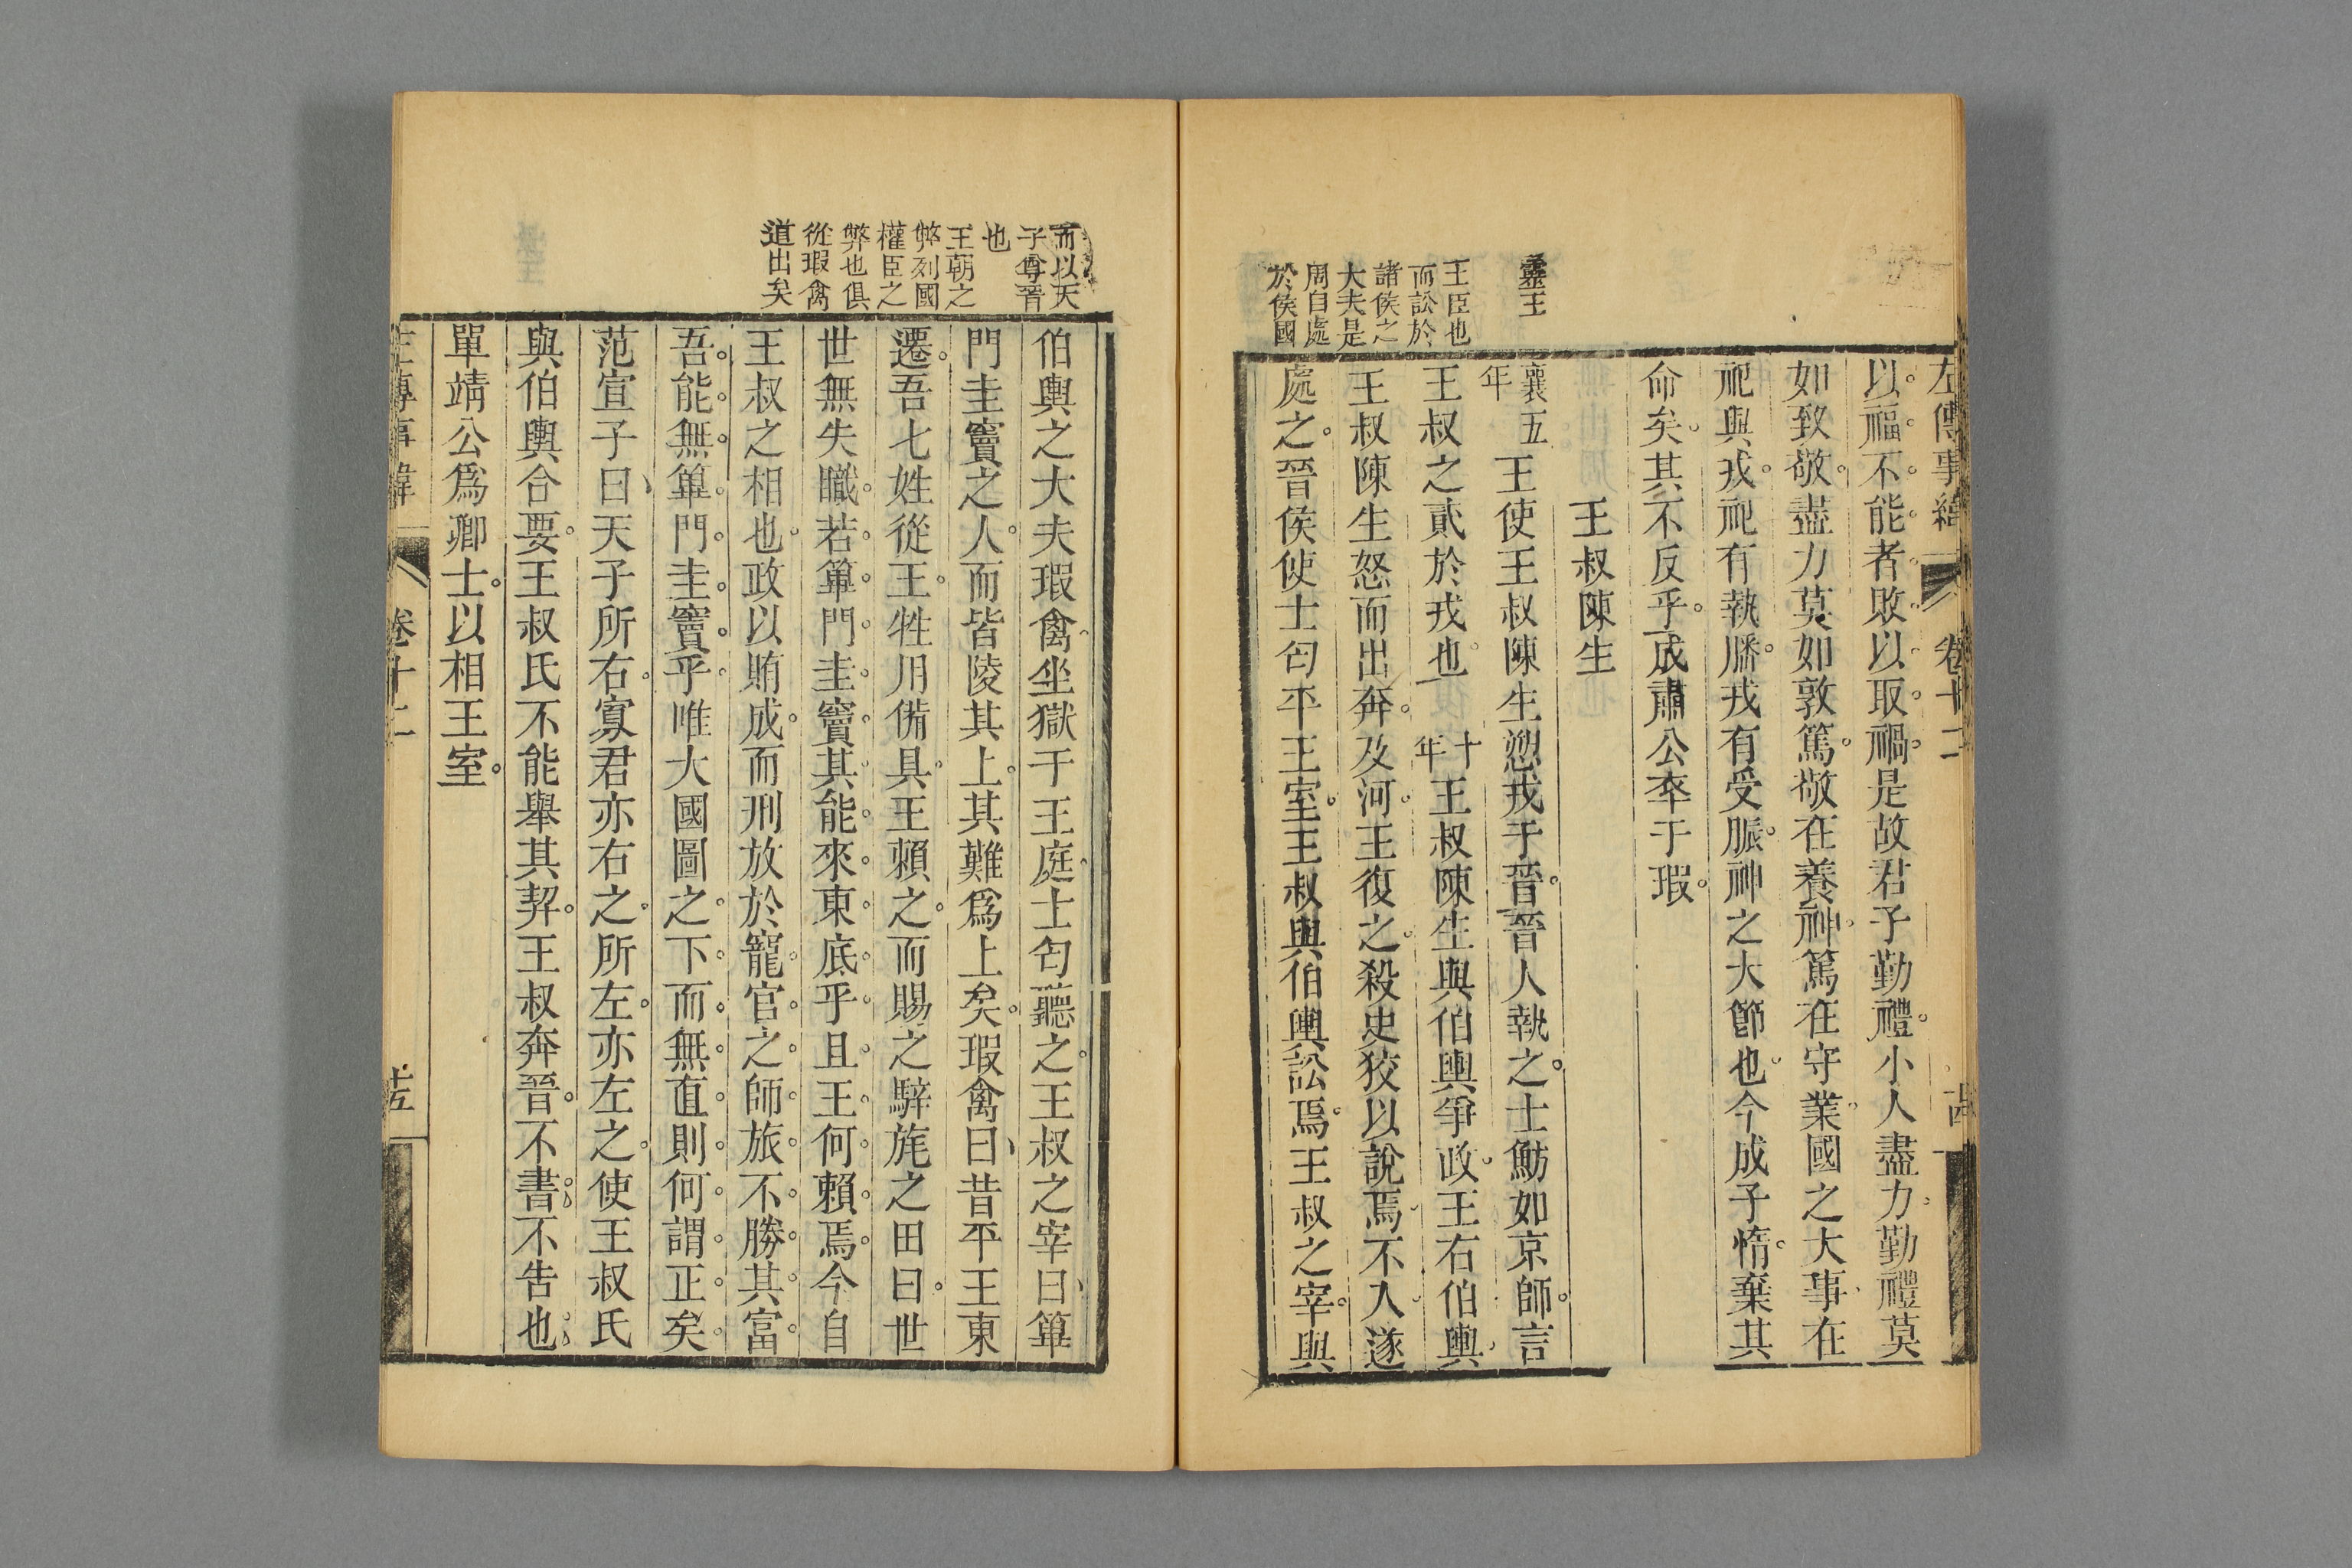 左傳事緯
卷十二
以福不能者敗以取禍是故君子勤禮小人盡力勤禮莫
如致敬盡力莫如敦篤敬在養神篤在守業國之大事在
祀與戎祀有執膰戎有受脤神之大節也今成子惰棄其
命矣其不反乎成肅公卒于瑕
王叔陳生
靈王
襄五年王使王叔陳生愬戎于晉晉人執之士魴如京師言
王叔之貳於戎也十年王叔陳生與伯輿爭政王右伯輿
王叔陳生怒而出奔及河王復之殺史狡以說焉不入遂
處之晉侯使士匄平王室王叔與伯輿訟焉王叔之宰與
王臣也
而訟於
諸侯之
大夫是
周自處
於侯國
而以天
子尊晉
也
王朝之
弊列國
權臣之
弊也俱
從瑕禽
道出矣
伯輿之大夫瑕禽坐獄于王庭士匄聽之王叔之宰曰篳
門圭竇之人而皆陵其上其難爲上矣瑕禽曰昔平王東
遷吾七姓從王牲用備具王賴之而賜之騂旄之田曰世
世無失職若篳門圭竇其能來東底乎且王何賴焉今自
王叔之相也政以賄成而刑放於寵官之師旅不勝其富
吾能無篳門圭竇乎唯大國圖之下而無直則何謂正矣
范宣子曰天子所右寡君亦右之所左亦左之使王叔氏
與伯輿合要王叔氏不能舉其契王叔奔晉不書不告也
單靖公爲卿士以相王室
左傳事緯
卷十二
十五